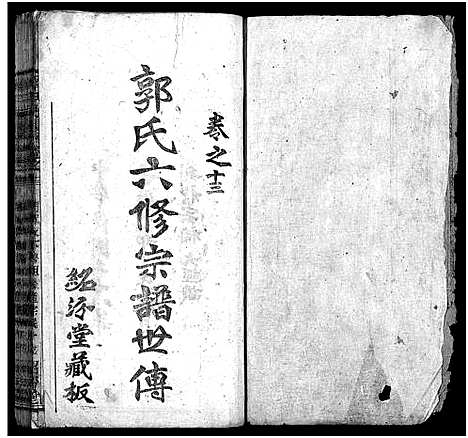 卷之十三
郭氏六修宗譜世傳
紹汾堂藏板